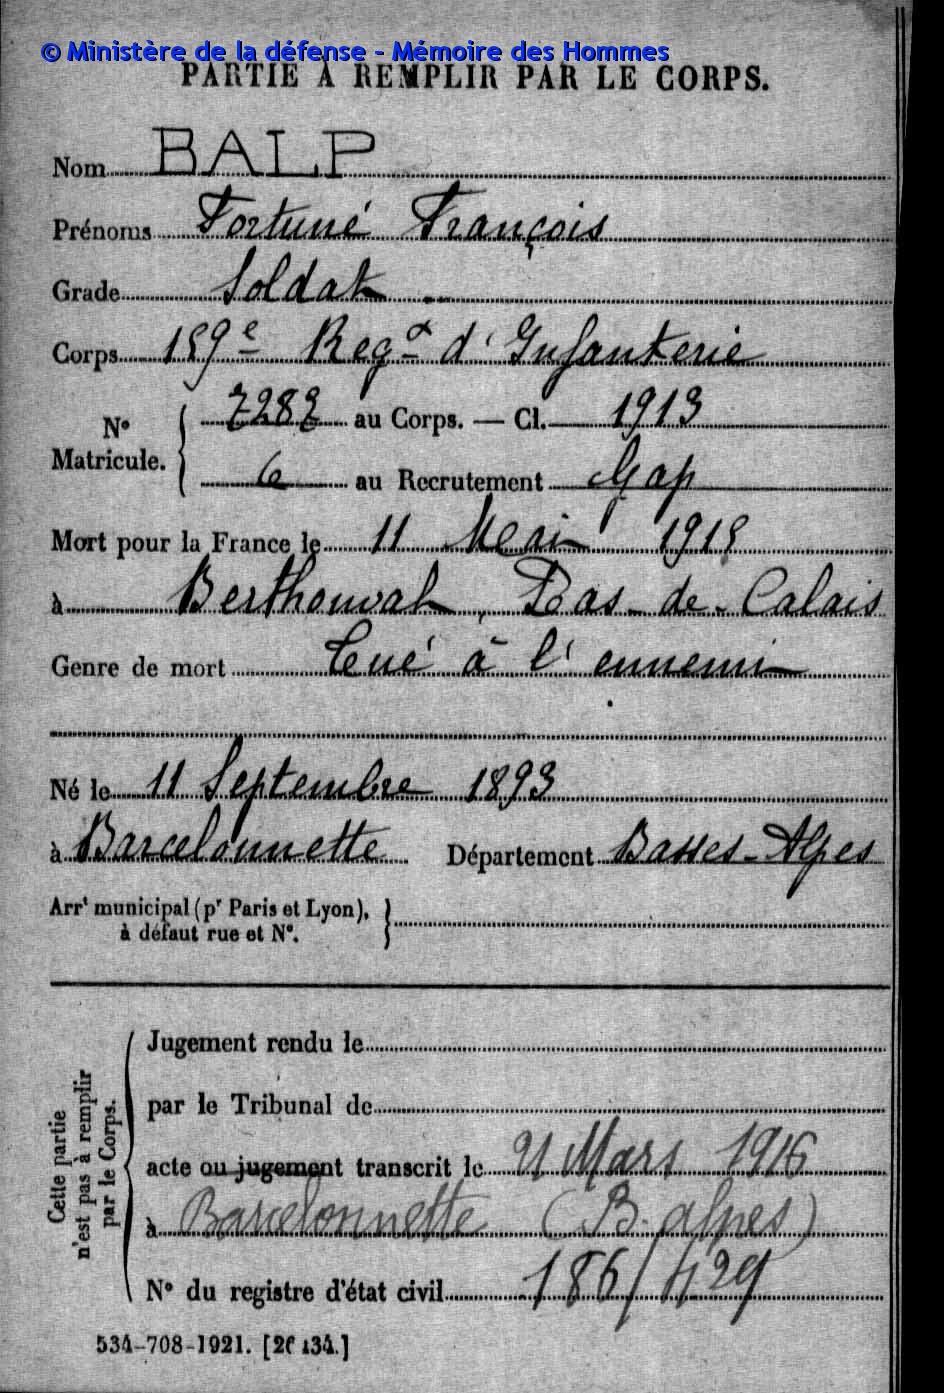 © Ministère de la défense - Mémoire des Hommes
PARTIE À REMPLIR PAR LE CORPS.
Nom BALP
Prénoms Fortuné François
Grade Soldat
Corps 159e Regt d'Infanterie
N° Matricule. 7282 au Corps. — Cl. 1913
6 au Recrutement Gap
Mort pour la France le 11 Mai 1915
à Berthonval, Pas-de-Calais
Genre de mort Tué à l'ennemi
Né le 11 Septembre 1893
à Barcelonnette Département Basses-Alpes
Arrt municipal (pr Paris et Lyon),
à défaut rue et N°.
Cette partie n'est pas à remplir par le Corps.
Jugement rendu le
par le Tribunal de
acte ou jugement transcrit le 21 Mars 1916
à Barcelonnette (B. alpes)
N° du registre d'état civil 186/429
534-708-1921. [26434.]